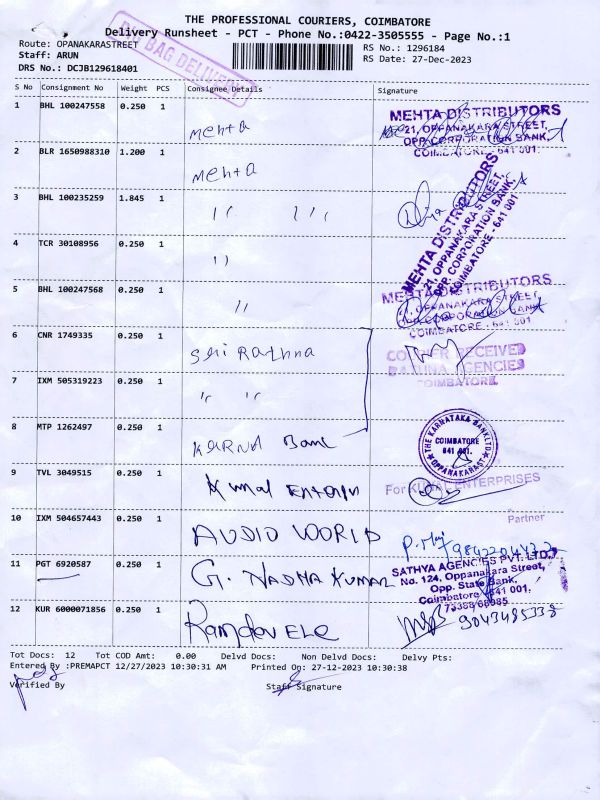 THE PROFESSIONAL COURIERS, COIMBATORE
Delivery Runsheet - PCT - Phone No.:0422-3505555 - Page No.:1
Route: OPANAKARASTREET
RS No.: 1296184
Staff: ARUN
RS Date: 27-Dec-2023
DRS No.: DCJB129618401
BAG DELIVERY
S No Consignment No Weight PCS Consignee Details Signature
1 BHL 100247558 0.250 1 Mehta
MEHTA DISTRIBUTORS
21, OPPANAKARA STREET,
OPP.CORPORATION BANK,
COIMBATORE - 641 001.
2 BLR 1650988310 1.200 1 Mehta
3 BHL 100235259 1.845 1 " "
MEHTA DISTRIBUTORS
21, OPPANAKARA STREET,
OPP.CORPORATION BANK,
COIMBATORE - 641 001
4 TCR 30108956 0.250 1 "
5 BHL 100247568 0.250 1 "
MEHTA DISTRIBUTORS
21, OPPANAKARA STREET,
OPP.CORPORATION BANK
COIMBATORE - 641 001
6 CNR 1749335 0.250 1 Sri Rathna
COURIER RECEIVED
RATHNA AGENCIES
COIMBATORE.
7 IXM 505319223 0.250 1 " "
8 MTP 1262497 0.250 1 KARNA Bank
THE KARNATAKA BANK LTD.
COIMBATORE
641 001.
OPPANAKARA ST
9 TVL 3049515 0.250 1 Kunal Enterp
For KUNAL ENTERPRISES
Partner
10 IXM 504657443 0.250 1 AUDIO WORLD
11 PGT 6920587 0.250 1 G. NADHA KUMAR
SATHYA AGENCIES PVT. LTD.,
No. 124, Oppanakara Street,
Opp. State Bank,
Coimbatore - 641 001.
73388 68985
12 KUR 6000071856 0.250 1 Ramdev ELe
9043485338
Tot Docs: 12 Tot COD Amt: 0.00 Delvd Docs: Non Delvd Docs: Delvy Pts:
Entered By :PREMAPCT 12/27/2023 10:30:31 AM Printed On: 27-12-2023 10:30:38
Verified By
Staff Signature